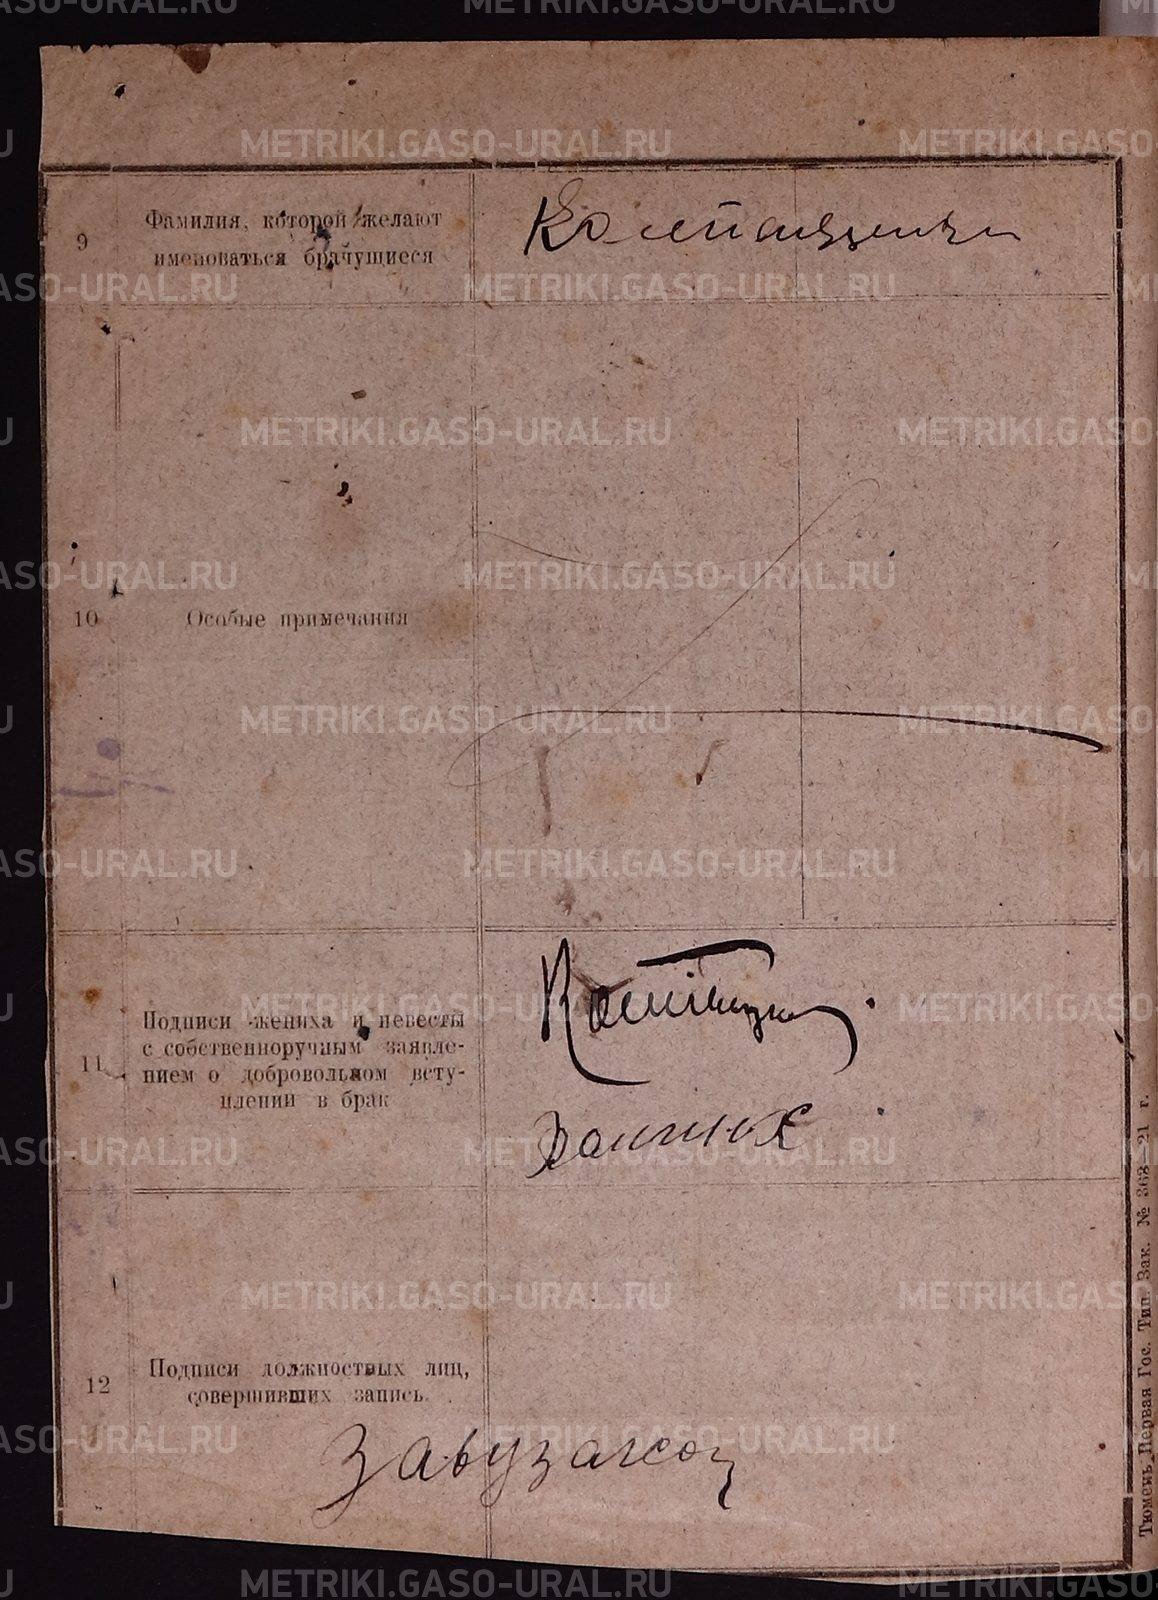 9
Фамилия, которой желают
именоваться брачущиеся
10
Особые примечания
11
Подписи жениха и невесты
с собственноручным заявле-
нием о добровольном всту-
плении в брак
12
Подписи должностных лиц,
совершивших запись.
Завузагсом
Тюмень, Первая Гос. Тип. Зак. № 363—21 г.
METRIKI.GASO-URAL.RU